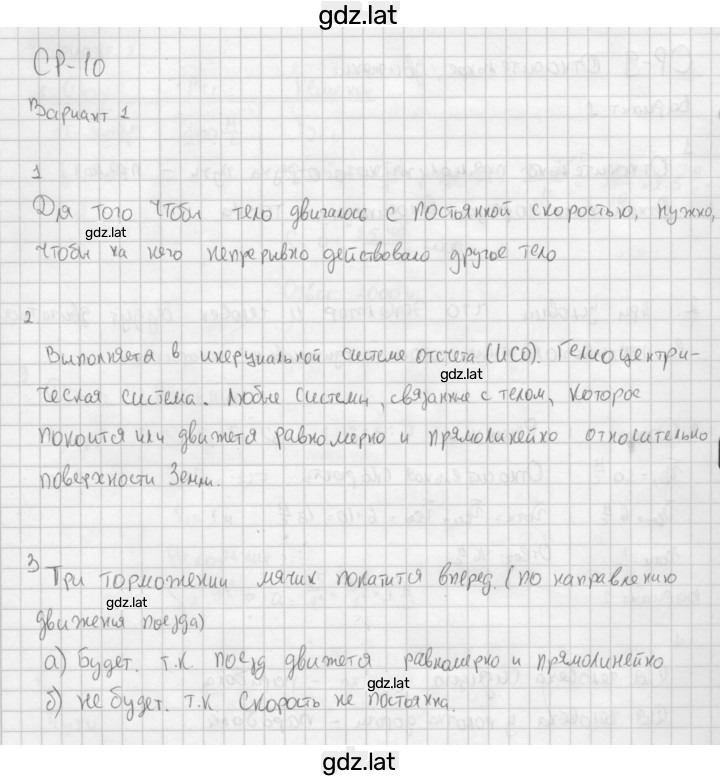 gdz.lat
СР-10
Вариант 1
1
Для того чтобы тело двигалось с постоянной скоростью, нужно,
gdz.lat
чтобы на него непрерывно действовало другое тело
2
Выполняета в инерциальной системе отсчета (ИСО). Гелиоцентри-
gdz.lat
ческая система. Любые системы, связанные с телом, которое
покоится или движется равномерно и прямолинейно относительно
поверхности Земли.
3
При торможении мячик покатится вперед. (по направлению
gdz.lat
движения поезда)
а) будет. т.к поезд движется равномерно и прямолинейно
gdz.lat
б) не будет. т.к скорость не постоянна.
gdz.lat